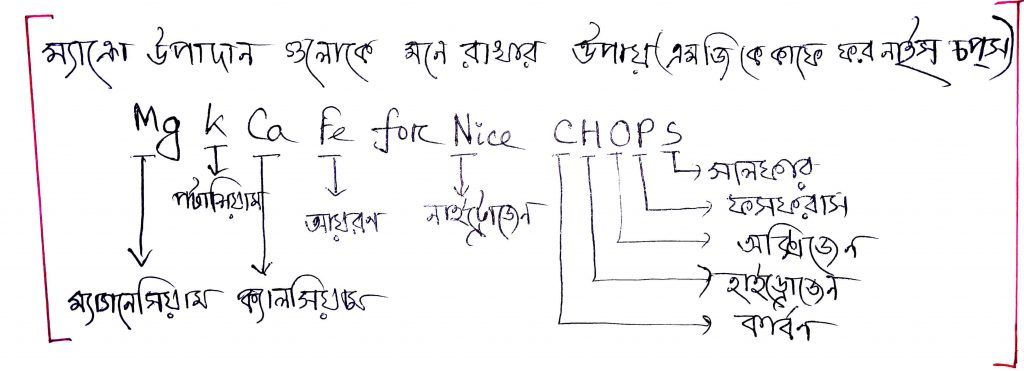 ম্যাক্রো উপাদান গুলোকে মনে রাখার উপায় (এমজি কে কাফে ফর নাইস চপ্স)
Mg K Ca Fe for Nice CHOPS
সালফার
পটাসিয়াম
ফসফরাস
আয়রণ
নাইট্রোজেন
অক্সিজেন
ম্যাগনেসিয়াম ক্যালসিয়াম
হাইড্রোজেন
কার্বন